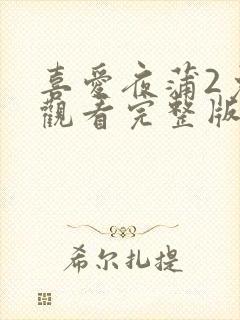 喜愛夜蒲2
觀看完整版
希尔扎提